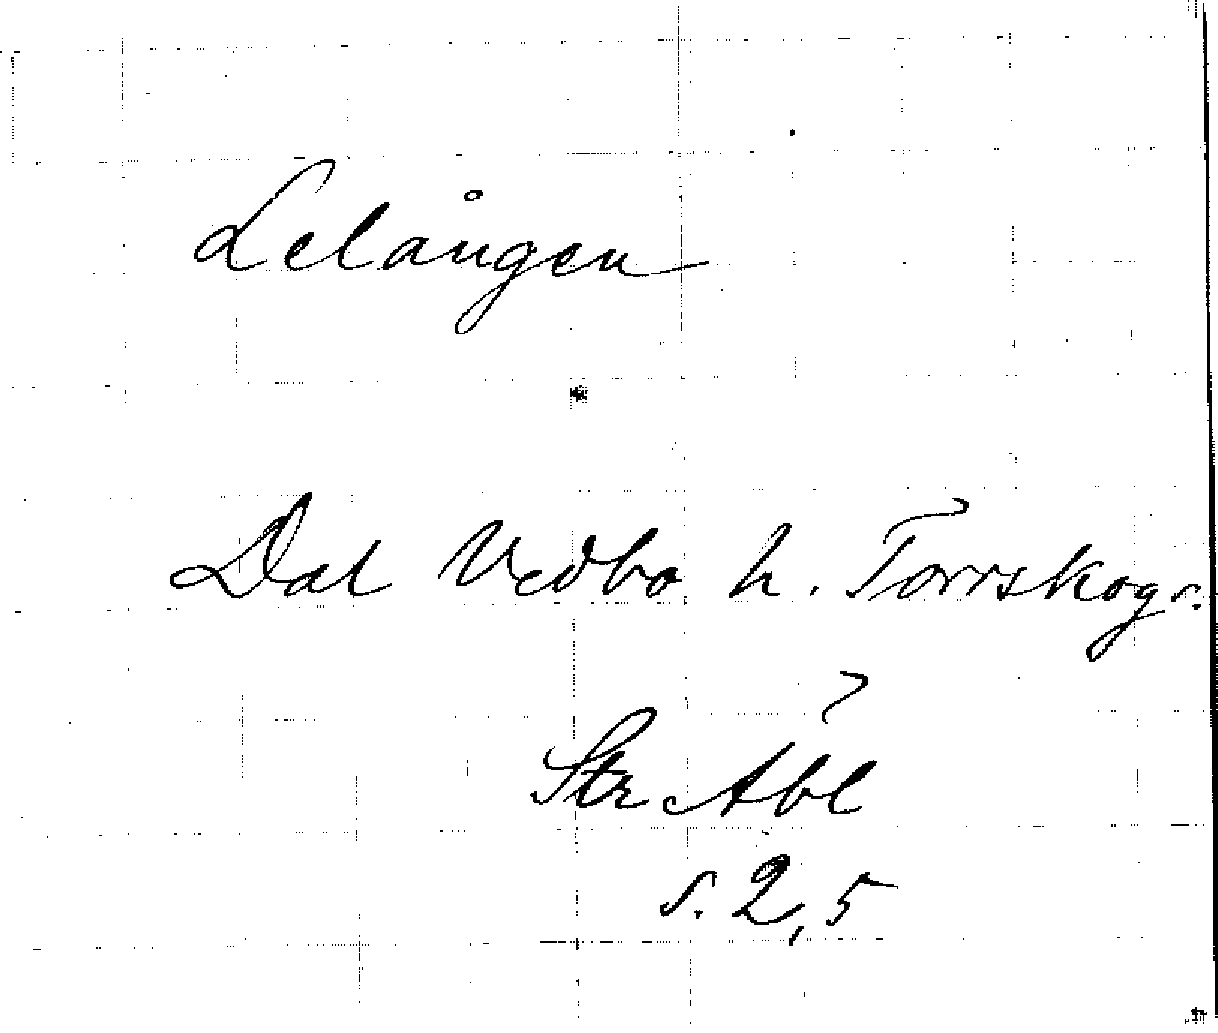 Lelången
Dal Vedbo h. Torrskogs.
Str Åbl
s. 2, 5